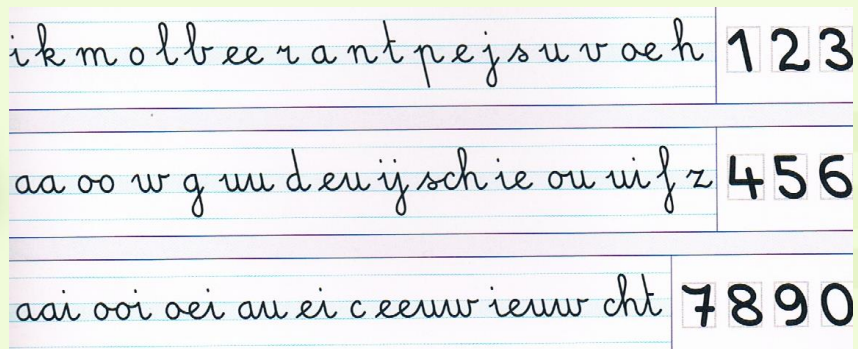 i k m o l b ee r a n t p e j s u v oe h 1 2 3
aa oo w g uu d eu ij sch ie ou ui f z 4 5 6
aai ooi oei au ei c eeuw ieuw cht 7 8 9 0